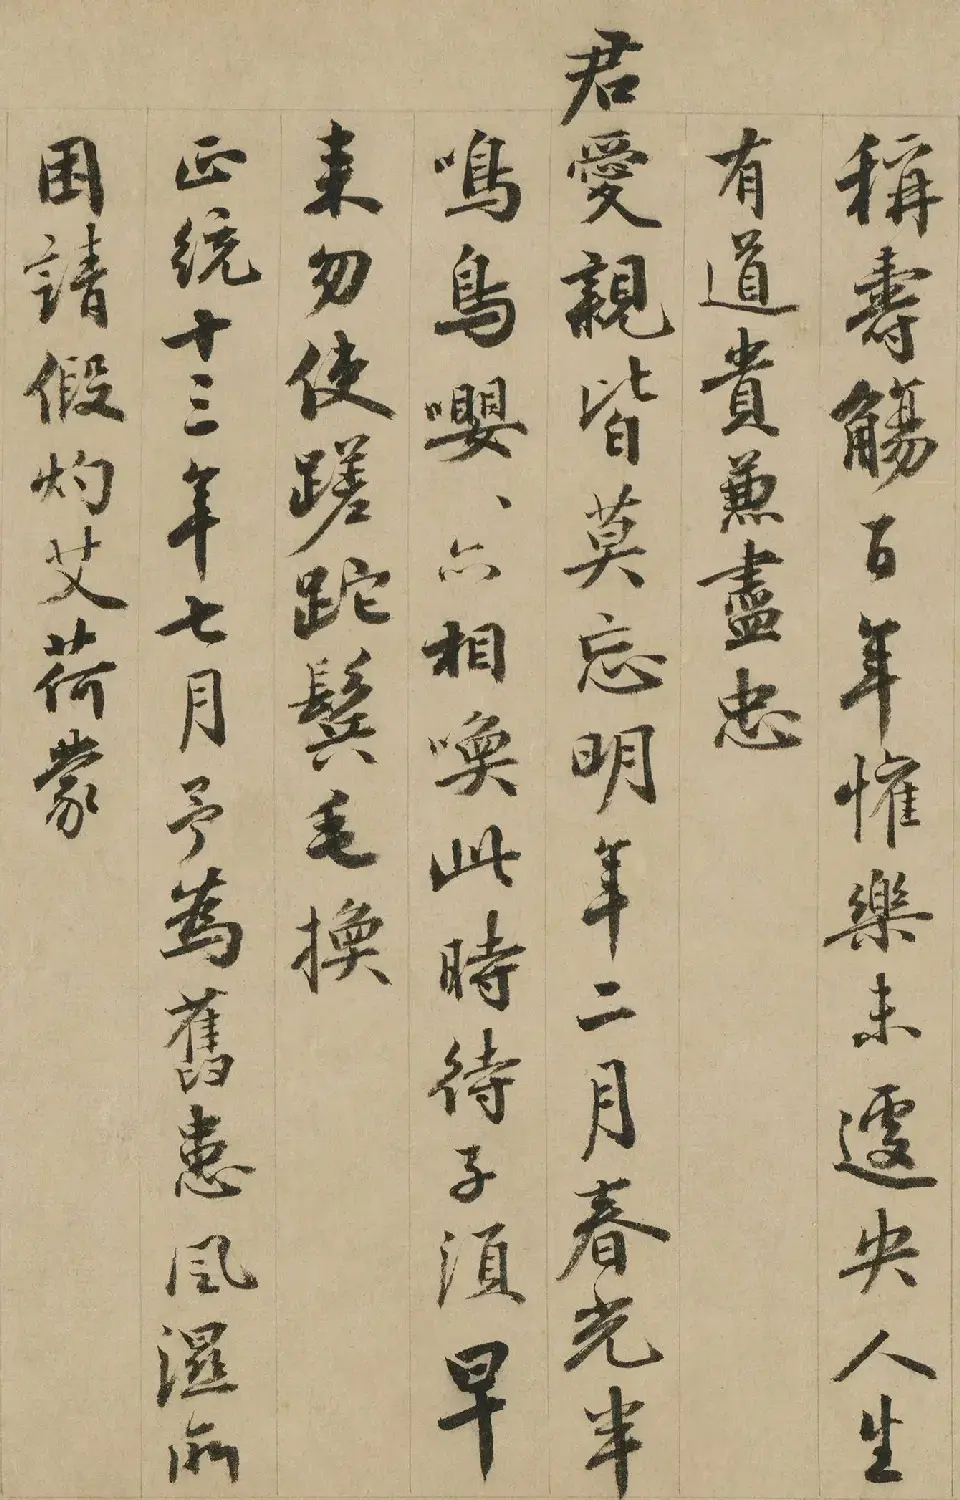 稱壽觴百年懽樂未遽央人生
有道貴兼盡忠
君愛親皆莫忘明年二月春光半
鳴鳥嚶、亦相喚此時待子須早
来勿使蹉跎鬓毛換
正統十三年七月予為舊患風濕所
困請假灼艾荷蒙